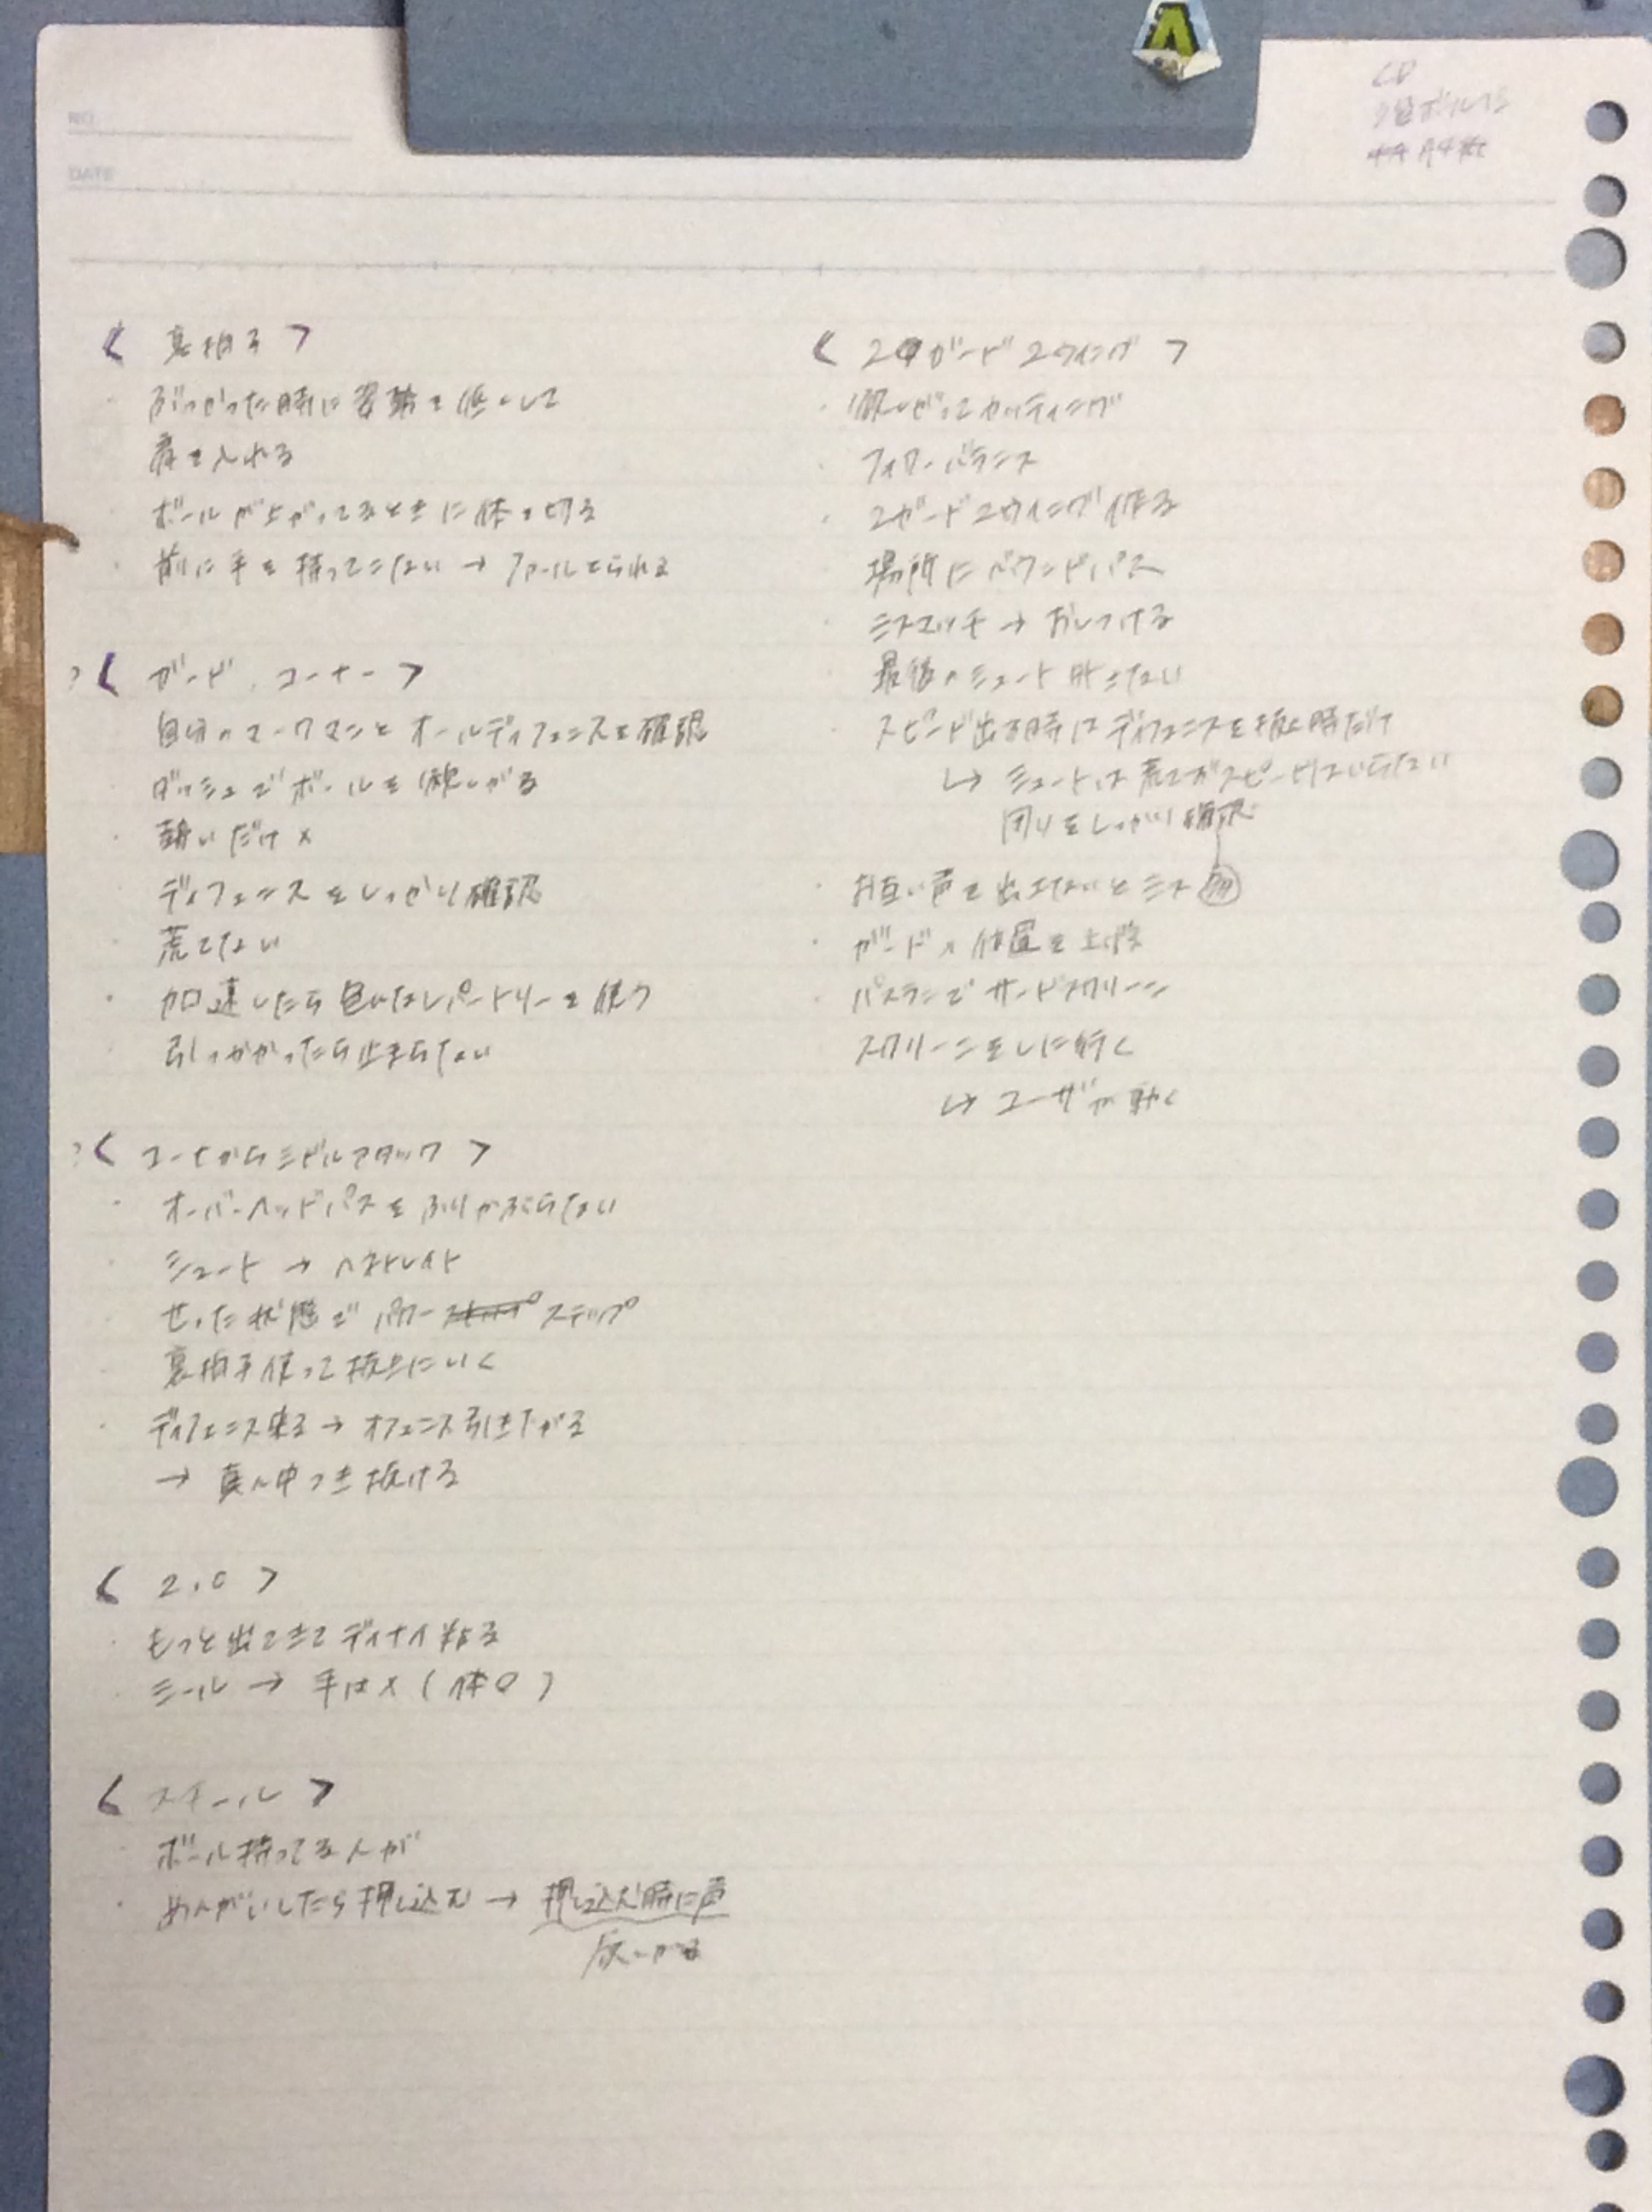 NO.
DATE
CD
紙 A4紙
< 裏拍子 >
・ぶつかった時に姿勢を低くして
肩を入れる
・ボールが上がってるときに体を切る
・前に手を持ってこない → ファールとられる
< ガード、コーナー >
・自分のマークマンとオールディフェンスを確認
・ダッシュでボールを欲しがる
・勢いだけ ×
・ディフェンスをしっかり確認
・荒てない
・加速したら色んなレパートリーを使う
・引っかかったら止まらない
< コーナからミドルアタック >
・オーバーヘッドパスをふりかぶらない
・シュート → ストレイト
・せった状態でパワー ステップ
・裏拍子使って抜きにいく
・ディフェンス来る → オフェンス引き下がる
→ 真ん中つき抜ける
< 2.0 >
・もっと出てきてディナイ粘る
・シール → 手は× ( 体○ )
< スチール >
・ボール持ってる人が
・めんがいしたら押し込む → 押し込む時に声
< 2ガード 2ウィング >
・カッティング
・フォローバランス
・2ガード2ウィング作る
・場所にバウンドパス
・ミスマッチ → おしつける
・最後のシュート外さない
・スピード出す時はディフェンスを抜く時だけ
↳ シュートは荒てずスピードはいらない
周りをしっかり確認
・お互い声を出さないとミス 多
・ガードの位置を上げる
・パスランでサードスクリーン
スクリーンをしに行く
↳ ユーザが動く